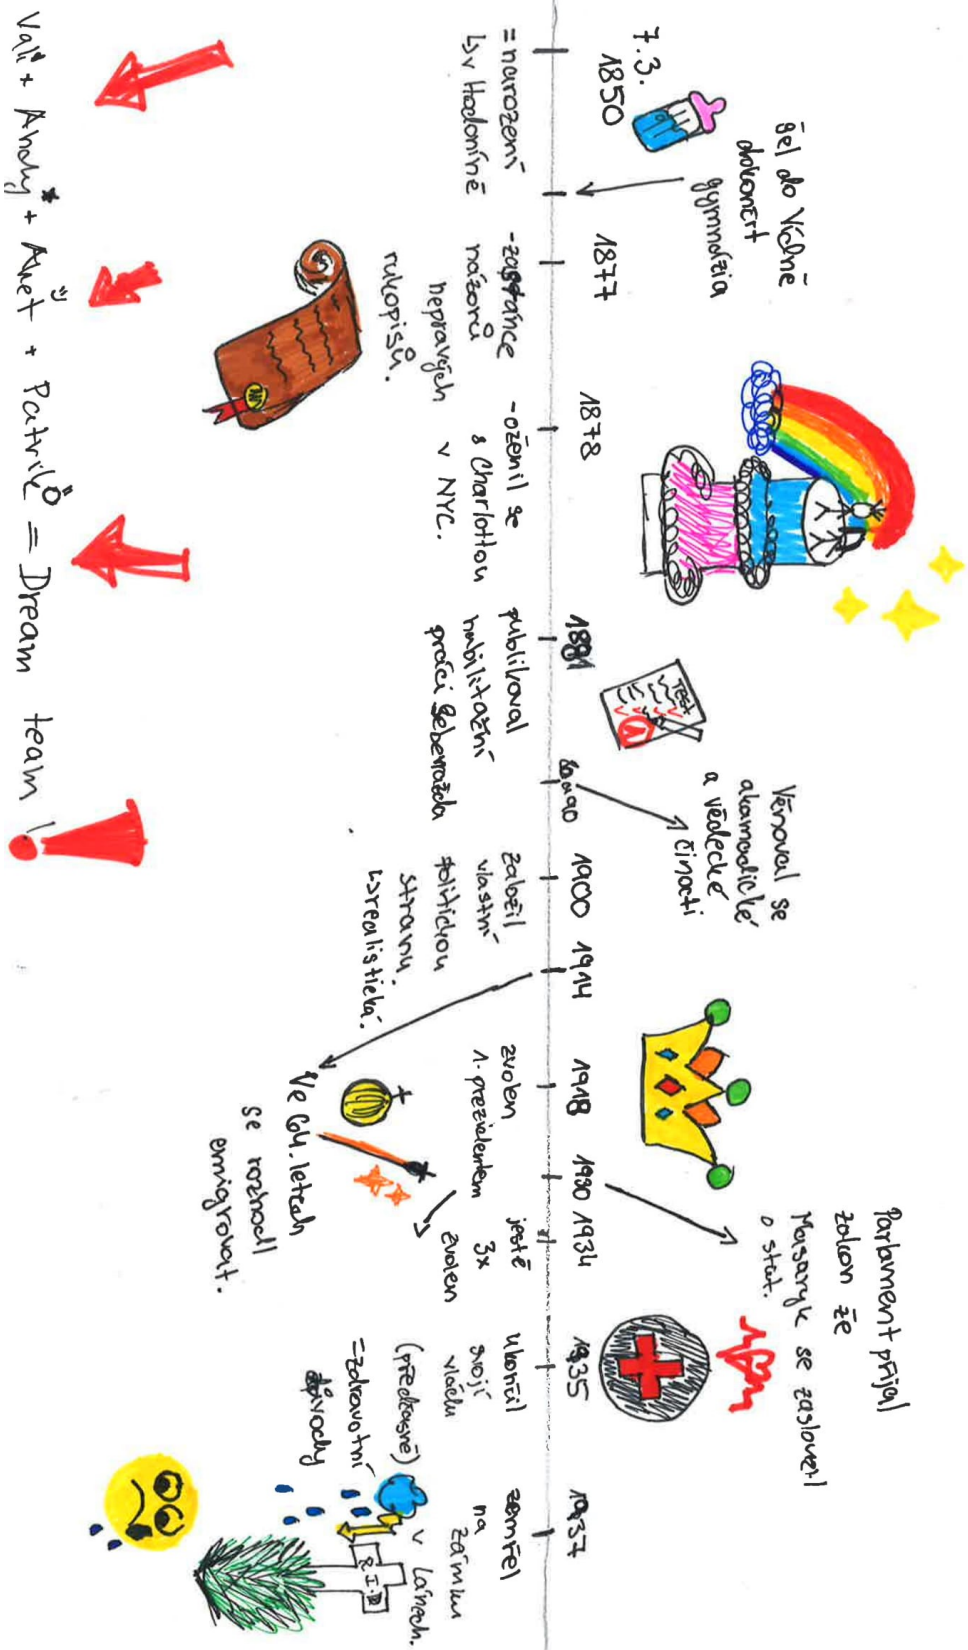 7.3.
1850
= narození
↳ v Hodoníně
šel do Vídně
dokončit
gymnázia
1877
-zastánce
názorů
nepravých
rukopisů.
1878
-oženil se
s Charlottou
v NYC.
1881
publikoval
habilitační
práci Sebevražda
TEST
1
80-90
Věnoval se
akamadické
a vědecké
činosti
1900
založil
vlastní
politickou
stranu.
↳ realistická.
1914
Ve 64. letech
se rozhodl
emigrovat.
1918
zvolen
1. prezidentem
1930
Parlament přijal
zákon že
Masaryk se zasloužil
o stát.
1934
ještě
3x
zvolen
1935
Ukončil
svojí
vládu
(předčasně)
=zdravotní
důvody
1937
zemřel
na
zámku
v Lánech.
R.I.P
Vali + Andy* + Anet + Patrik = Dream team!